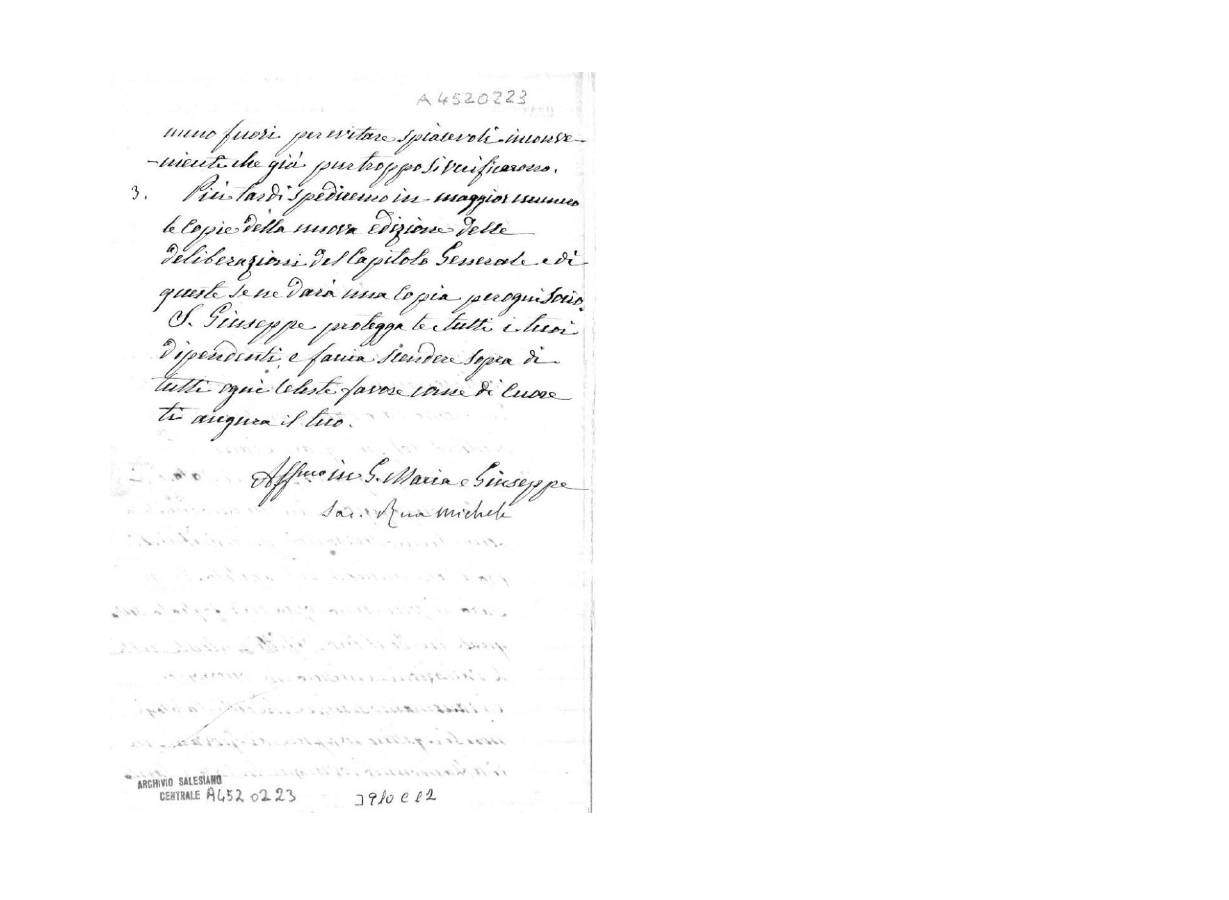 A4520223
nuno fuori per evitare spiacevoli inconve-
-nienti che già pur troppo si verificarono.
3. Più tardi spediremo in maggior numero
le Copie della nuova edizione delle
deliberazioni del Capitolo Generale e di
queste se ne darà una Copia per ogni Socio.
S. Giuseppe protegga te e tutti i tuoi
dipendenti e faccia scendere sopra di
tutti ogni Celeste favore come di Cuore
ti augura il tuo.
Affmo in G. Maria e Giuseppe
Sac. Rua Michele
ARCHIVIO SALESIANO
CENTRALE A452 02 23